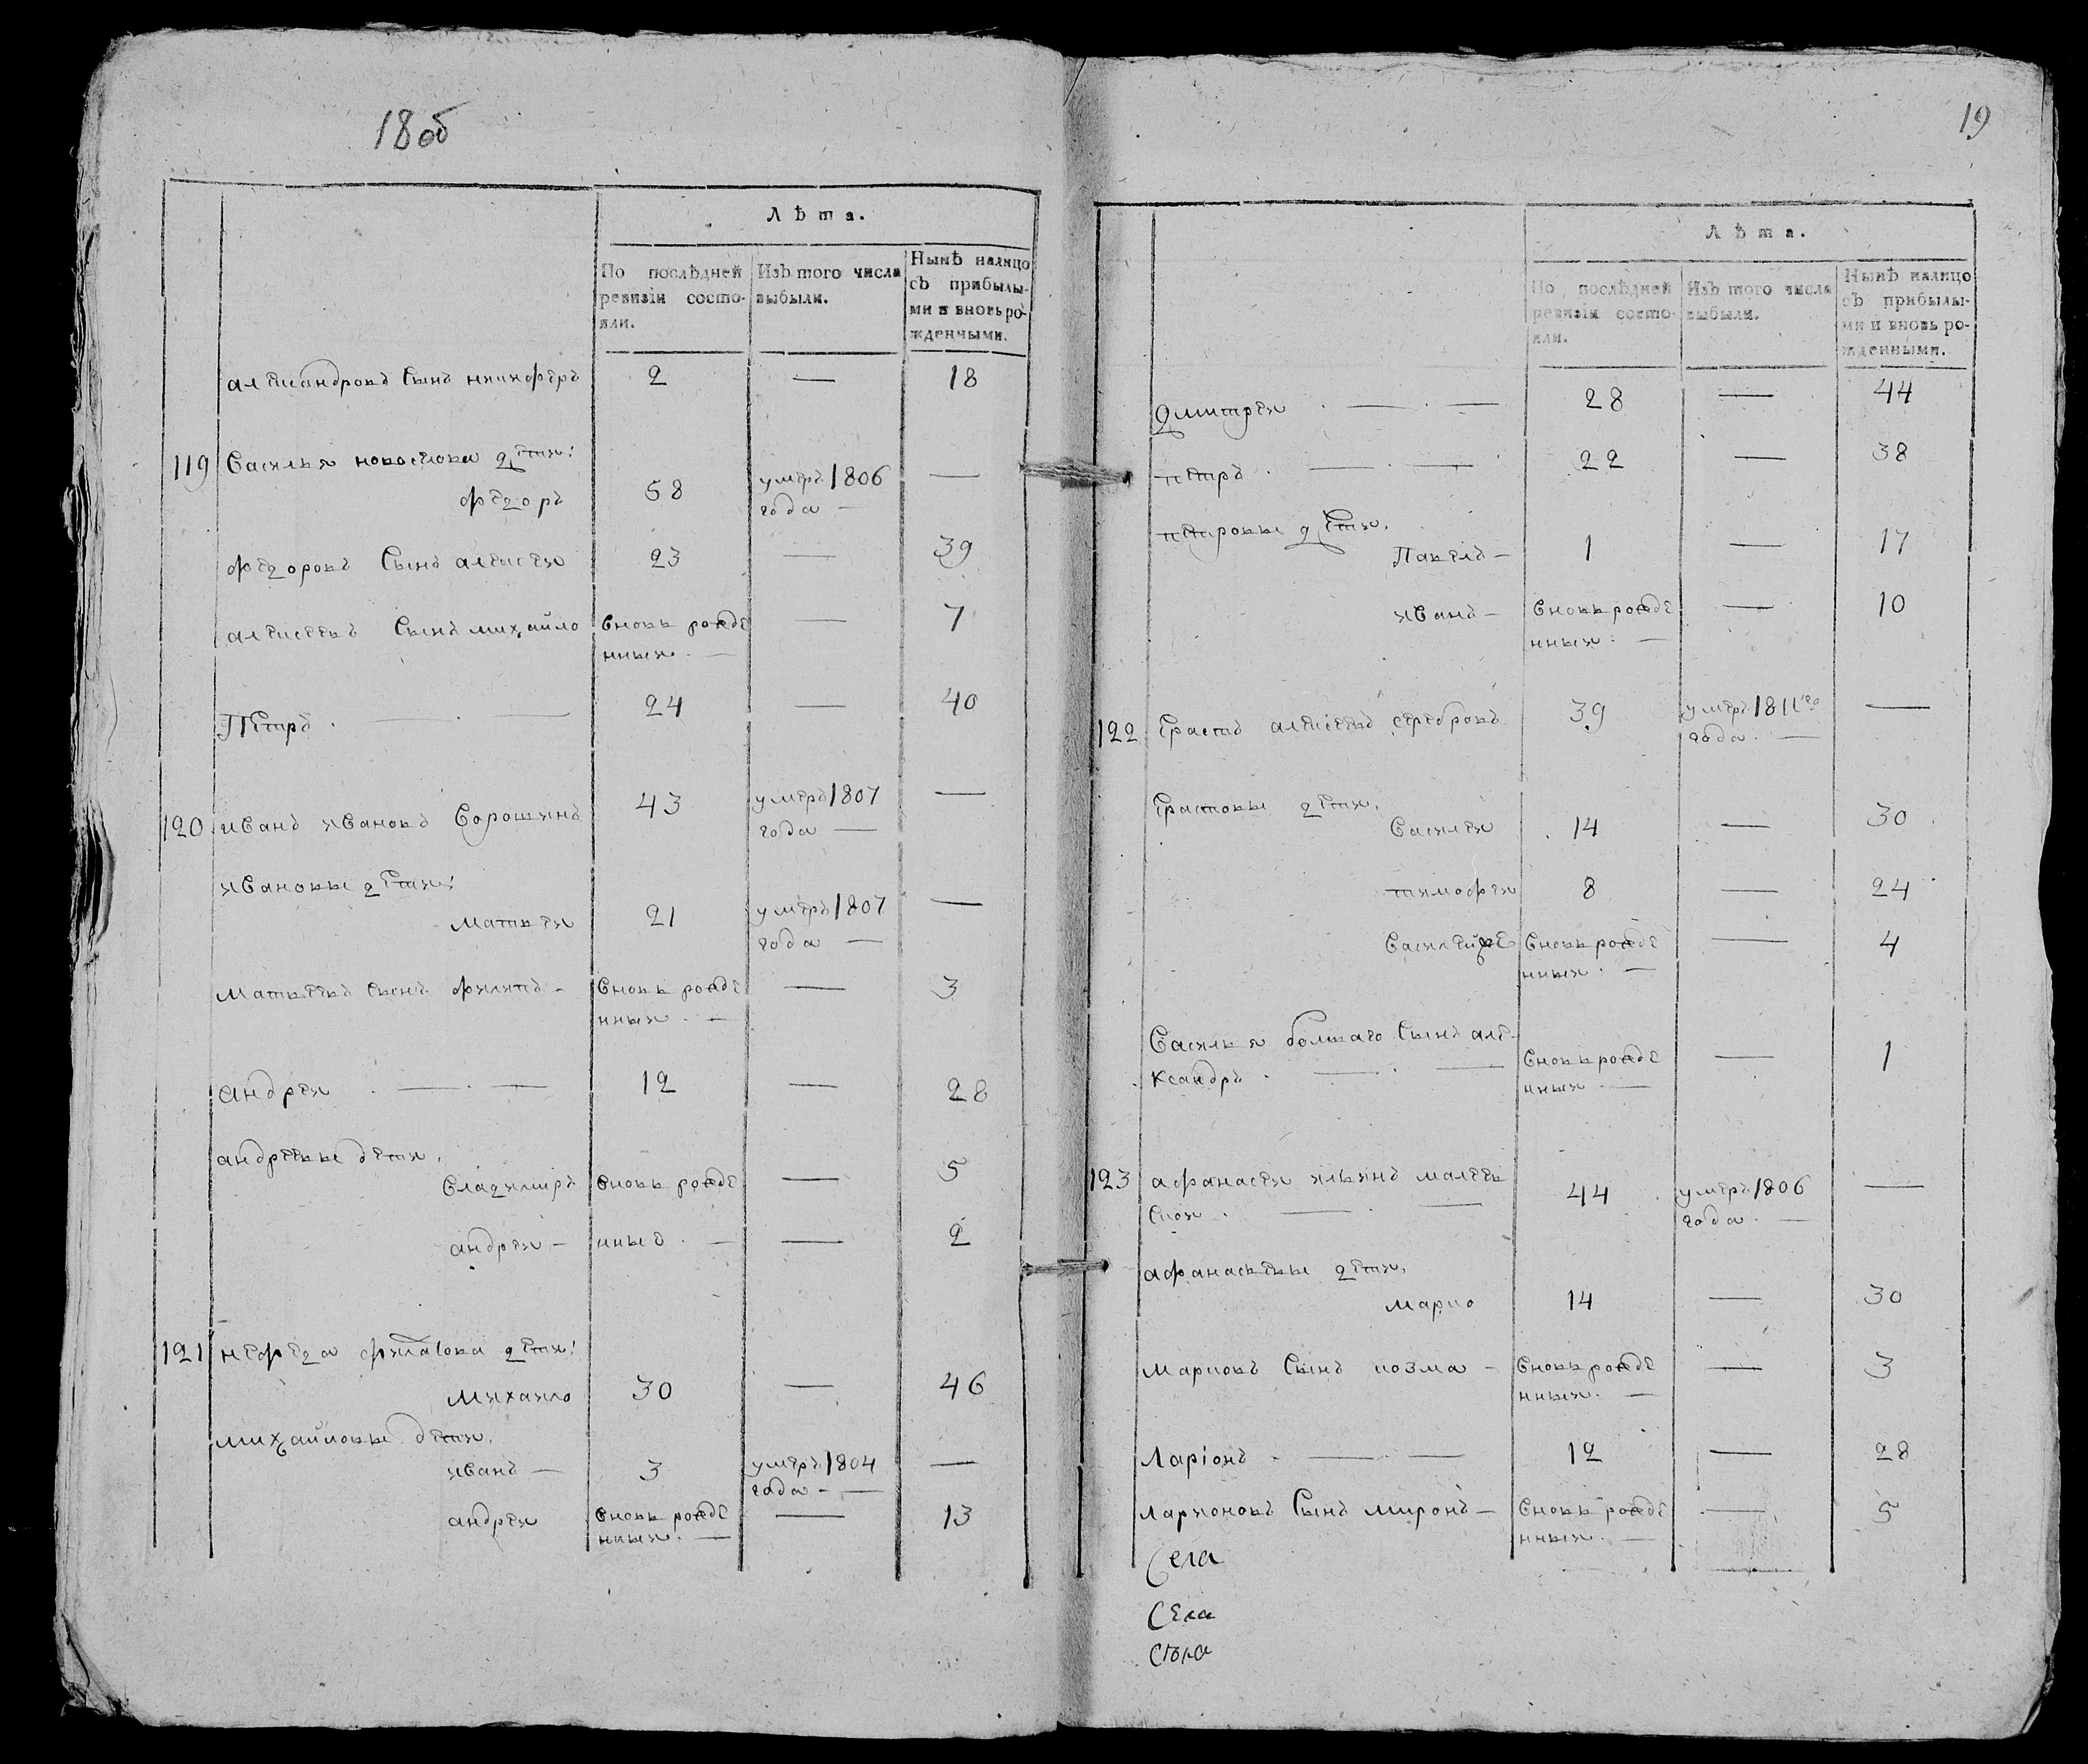 18 об
Лѣта.
По послѣдней ревизіи состояли.
Изъ того числа выбыли.
Нынѣ налицо съ прибылыми и вновь рожденными.
александровъ Сынъ никифоръ 2 — 18
119 Василья новоселова дети:
федоръ 58 умеръ 1806 —
года —
федоровъ Сынъ алексеи 23 — 39
алексеевъ Сынъ михайло вновь рожде — 7
нныи —
Петръ 24 — 40
120 иванъ ивановъ Сорошинъ 43 умеръ 1807 —
года —
ивановы дети:
матвеи 21 умеръ 1807 —
года —
матвеевъ Сынъ филипъ вновь рожде — 3
нныи —
андреи 12 — 28
андреевы дети,
владимиръ вновь рожде — 5
андреи — нные — — 2
121 нефеда филатова дети:
михаило 30 — 46
михайловы дети,
иванъ — 3 умеръ 1804 —
года —
андреи вновь рожде — 13
нныи —
19
Лѣта.
По послѣдней ревизіи состояли.
Изъ того числа выбыли.
Нынѣ налицо съ прибылыми и вновь рожденными.
дмитреи 28 — 44
петръ 22 — 38
петровы дети,
Павелъ — 1 — 17
иванъ — вновь рожде — 10
нныи —
122 Ерастъ алексеевъ серебровъ 39 умеръ 1811го —
года —
Ерастовы дети,
василеи 14 — 30
тимофеи 8 — 24
василеи же вновь рожде — 4
нныи —
василья болшаго Сынъ але-
ксандръ вновь рожде — 1
нныи —
123 афанасеи ильинъ малеев
скои 44 умеръ 1806 —
года —
афанасьевы дети,
марко 14 — 30
марковъ Сынъ козма — вновь рожде — 3
нныи —
Ларіонъ 12 — 28
ларионовъ Сынъ миронъ — вновь рожде — 5
нныи —
Села
Села